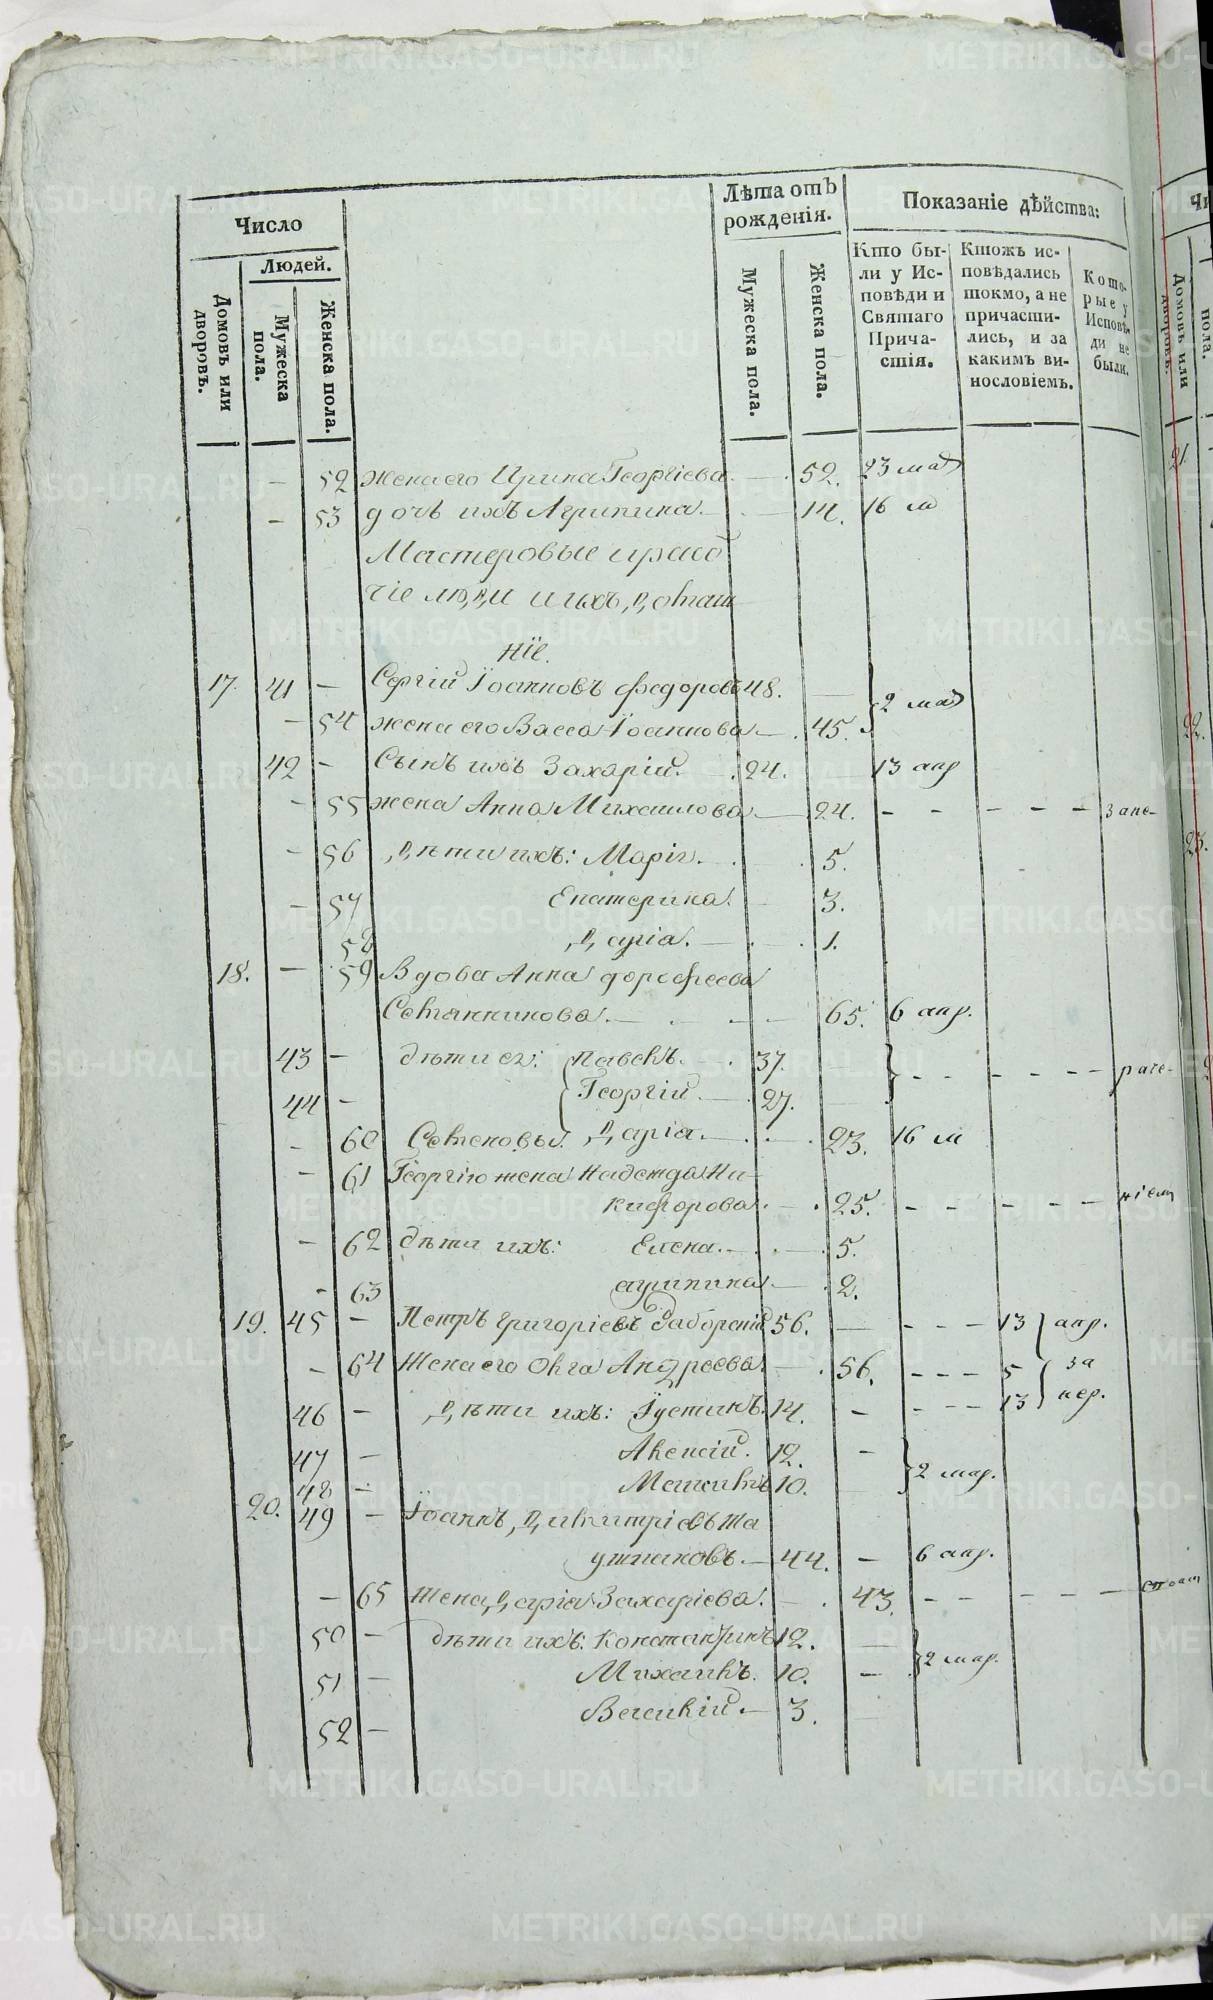 Число
Людей.
Домовъ или дворовъ.
Мужеска пола.
Женска пола.
Лѣта отъ рожденія.
Мужеска пола.
Женска пола.
Показаніе дѣйства:
Кто были у Исповѣди и Святаго Причастія.
Ктожъ исповѣдались токмо, а не причастились, и за какимъ винословіемъ.
Которые у Исповѣди не были.
- 52 жена его Ирина Георгіева. - 52. 23 мар
- 53 дочь ихъ Агрипина. - 14. 16 м
Мастеровые и рабо
чіе люди и ихъ домаш
ніе.
17. 41 - Сергій Іоанновъ Федоровъ 48. -
- 54 жена его Васса Іоаннова - 45. } 2 мар
42 - Сынъ ихъ Захарій. - 24. - 13 апр
- 55 жена Анна Михаилова - 24. - - - - - за не-
- 56 дѣти ихъ: Марія. - 5.
- 57 Екатерина. - 3.
58 Дарія. - 1.
18. - 59 Вдова Анна Дорофеева
65. 6 апр.
43 - дѣти ея: Павелъ. - 37. -
44 - Георгій. - 27. } - - - - - раче-
- 60 Дарія. - 23. 16 м
- 61 Георгію жена Надежда Ни-
кифорова. - 25. - - - - - ніем
- 62 дѣти ихъ: Елена. - 5.
- 63 агрипина - 2.
19. 45 - Петръ Григоріевъ 56. - - - - 13 } апр.
- 64 Жена его Олга Андреева. - 56. - - - 5 за
46 - дѣти ихъ: Іустинъ. 14. - - - - 13 } нер.
47 - Алексій. 12. -
48 - 10. } 2 мар.
20. 49 - Іоаннъ Димитріевъ
44. - 6 апр.
- 65 жена Дарія Захаріева. - 43. - - - - -
50 - дѣти ихъ: Константинъ 12. -
51 - Михаилъ. 10. - } 2 мар.
52 - Василій. - 3.
METRIKI.GASO-URAL.RU